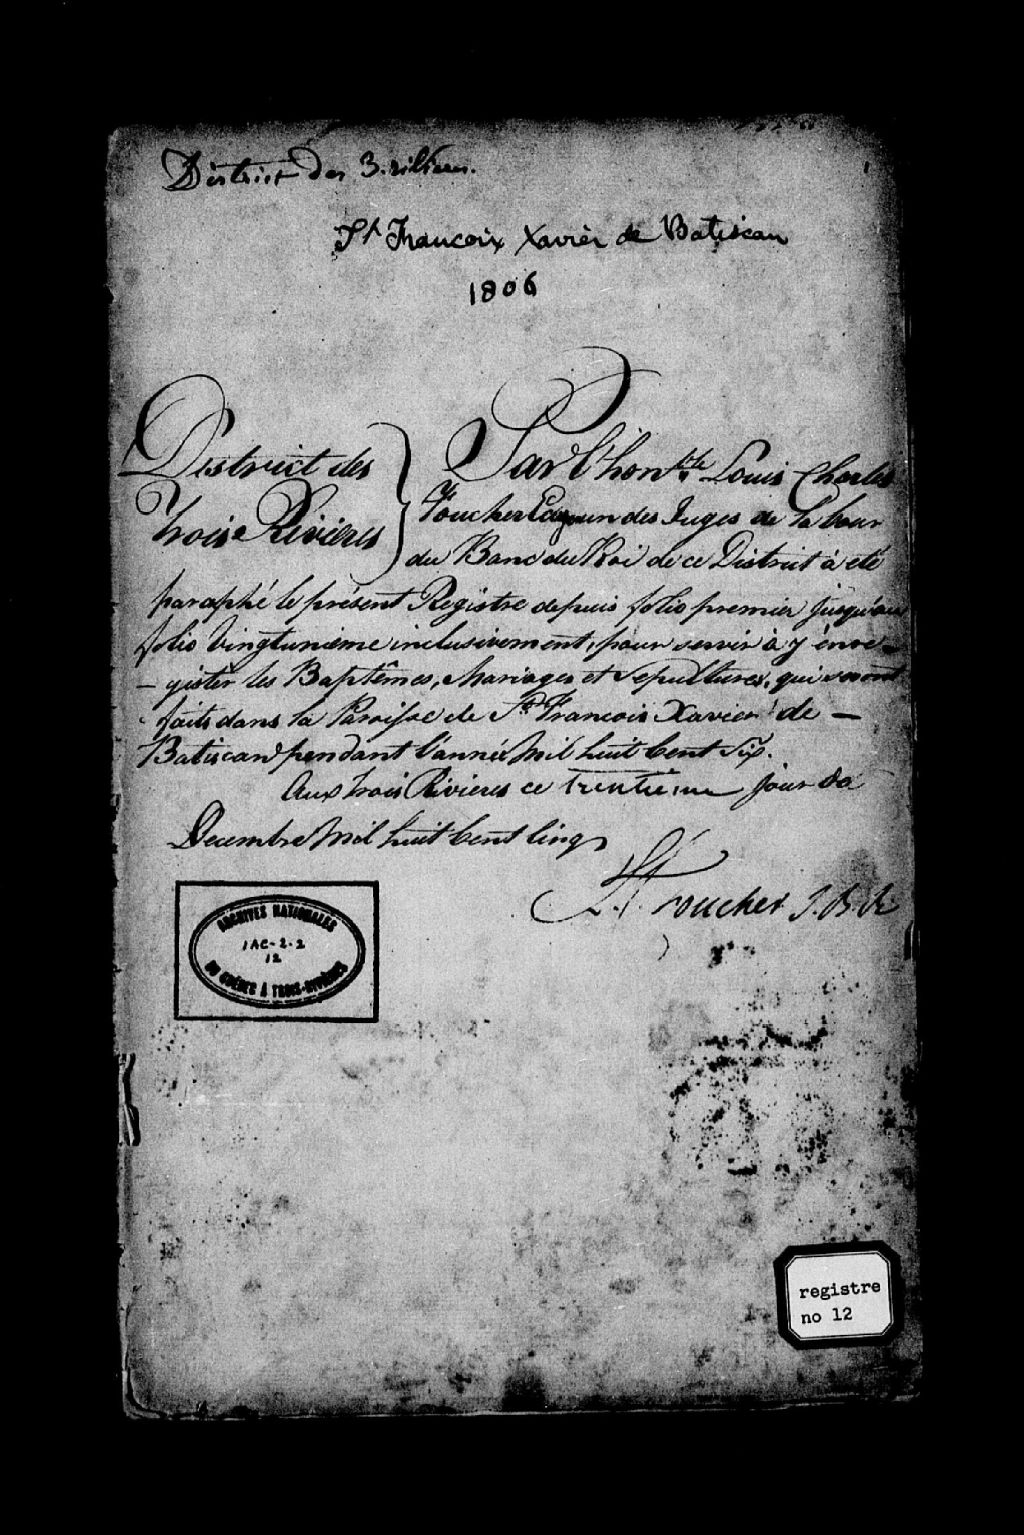 District des 3. rivieres.
St Francoix Xavièr de Batiscan
1806
District des
Trois Rivières
Par l'hon.ble Louis Charles
Foucher Ecyr un des Juges de la Cour
du Banc du Roi de ce District à eté
paraphé le présent Registre depuis folio premier jusqu'au
folio vingtunième inclusivement, pour servir à y énre-
-gister les Baptêmes, Mariages et Sepultures, qui seront
faits dans la Paroisse de St. Francois Xavier de —
Batiscan pendant l'année Mil huit Cent Six.
Aux trois Rivieres ce trentieme jour de
Decembre Mil huit Cent Cinq
L. C. Foucher J. B. R.
ARCHIVES NATIONALES
1AC-2-2
12
DU QUÉBEC À TROIS-RIVIÈRES
registre
no 12